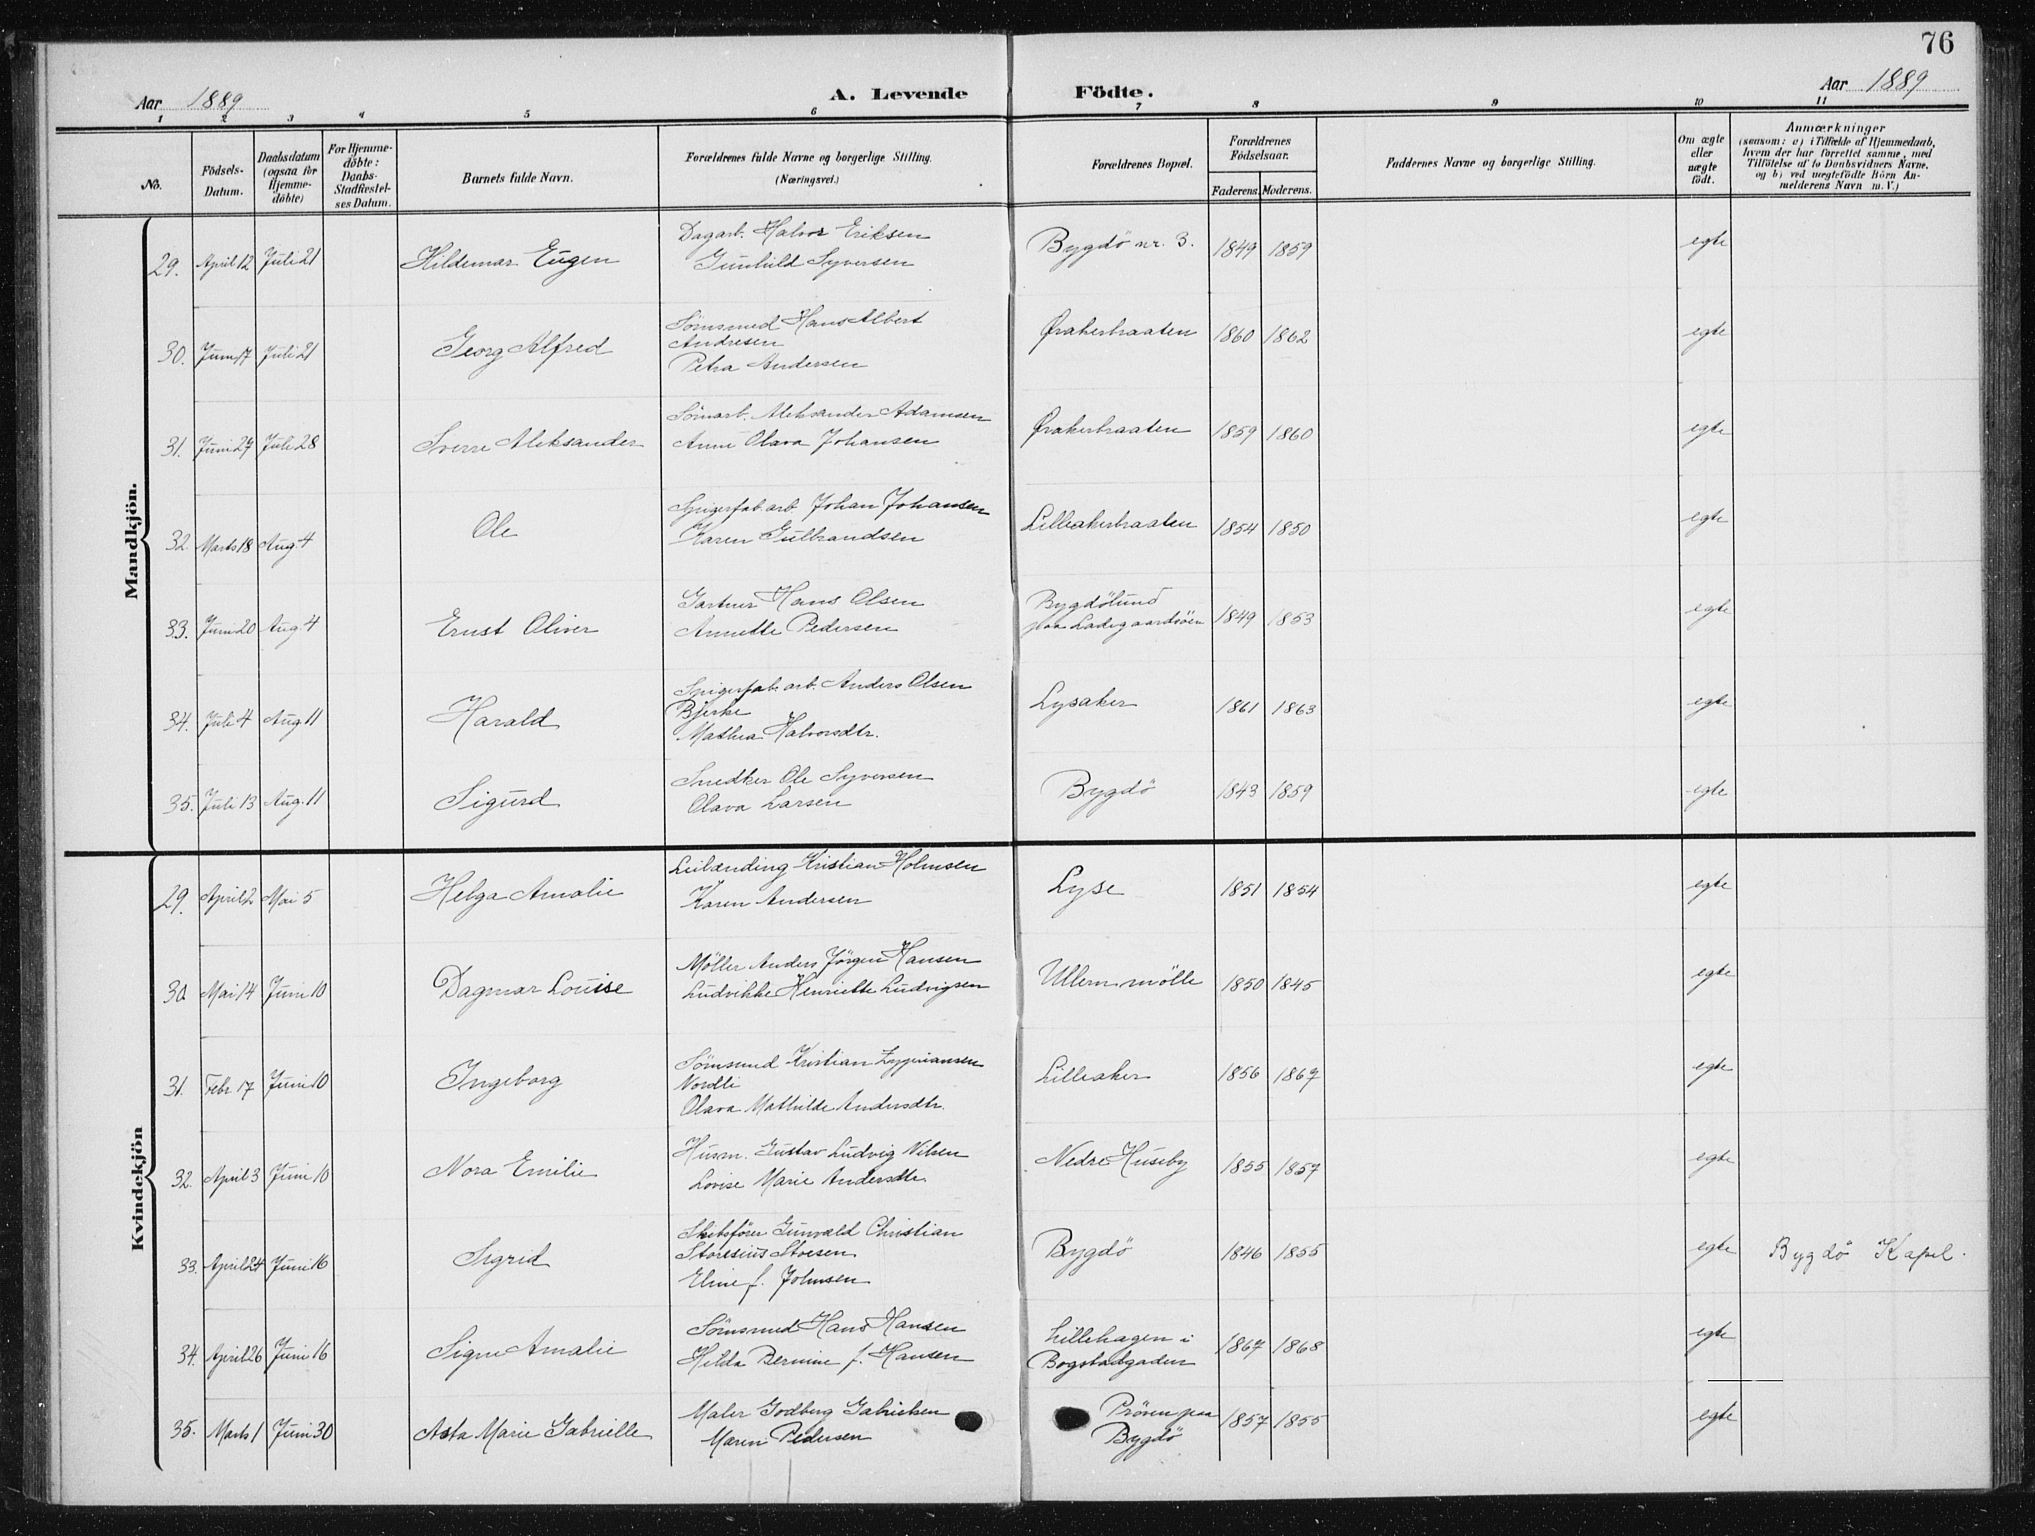 76
Aar 1889
A. Levende
Födte.
Aar 1889
1 2 3 4 5 6 7 8 9 10 11
No.
Födsels-
Datum.
Daabsdatum
(ogsaa for
Hjemme-
döbte)
For Hjemme-
döbte:
Daabs-
Stadfæstel-
ses Datum.
Barnets fulde Navn.
Forældrenes fulde Navne og borgerlige Stilling.
(Næringsvei.)
Forældrenes Bopæl.
Forældrenes
Födselsaar.
Faderens. Moderens.
Faddernes Navne og borgerlige Stilling.
Om ægte
eller
uægte
födt.
Anmærkninger
(saasom: a) i Tilfælde af Hjemmedaab,
hvem der har forrettet samme, med
Tilföielse af to Daabsvidners Navne,
og b) ved uægtefödte Börn An-
melderens Navn m. V.)
Mandkjön.
Dagarb. Halvor Eriksen
29. April 12 Juli 21 Hildemar Eugen Gunhild Syversen Bygdö nr. 3. 1849 1859 egte
Sömsmed Hans Albert
Andresen
30. Juni 17 Juli 21 Georg Alfred Petra Andersen Örakerbraaten 1860 1862 egte
Sömarb. Aleksander Adamsen
31. Juni 27 Juli 28 Sverre Aleksander Anne Olava Johansen Örakerbraaten 1859 1860 egte
Spigerfab. arb. Johan Johansen
32. Marts 18 Aug. 4 Ole Karen Gulbrandsen Lilleakerbraaten 1854 1850 egte
Gartner Hans Olsen Bygdölund
33. Juni 20 Aug. 4 Ernst Oliver Annette Pedersen paa Ladegaardsöen 1849 1853 egte
Spigerfab. arb. Anders Olsen
Bjerke
34. Juli 4 Aug. 11 Harald Mathea Halvorsdtr. Lysaker 1861 1863 egte
Snedker Ole Syversen
35. Juli 13 Aug. 11 Sigurd Olava Larsen Bygdö 1843 1859 egte
Kvindekjön
Leilænding Kristian Holmsen
29. April 2 Mai 5 Helga Amalie Karen Andersen Lyse 1851 1854 egte
Möller Anders Jörgen Hansen
30 Mai 14 Juni 10 Dagmar Louise Ludvikke Henriette Ludvigsen Ullern mölle 1850 1845 egte
Sömsmed Kristian Zypriansen
Nordli
31. Febr 17 Juni 10 Ingeborg Olava Mathilde Andersdtr. Lilleaker 1856 1867 egte
Husm. Gustav Ludvig Nilsen
32. April 3 Juni 10 Nora Emilie Lovise Marie Andersdtr. Nedre Huseby 1855 1857 egte
Skibsförer Gunvald Christian
Storesius Storsen
33. April 24 Juni 16 Sigrid Eline f. Johnsen Bygdö 1846 1855 egte Bygdö Kapel.
Sömsmed Hans Hansen Lillehagen i
34. April 26 Juni 16 Signe Amalie Hilda Bernine f. Hansen Bogstadgaden 1867 1868 egte
Maler Godberg Gabrielsen Pröven paa
35. Marts 1 Juni 30 Asta Marie Gabrielle Maren Pedersen Bygdö 1857 1855 egte